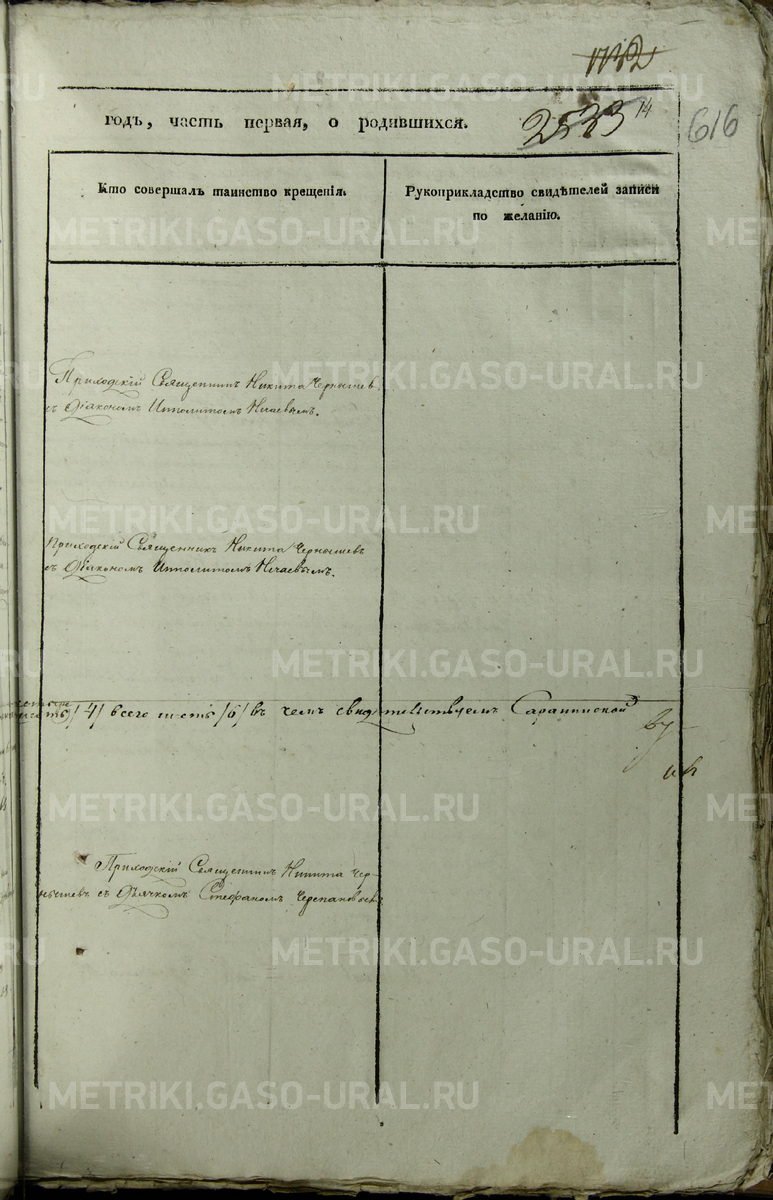 1732
годъ, часть первая, о родившихся.
2533
14
616
Кто совершалъ таинство крещенія.
Рукоприкладство свидѣтелей записи
по желанію.
Приходскій Священникъ Никита Чернышев
съ Діакономъ Ипполитомъ Нечаевымъ.
Приходскій Священникъ Никита Чернышевъ
съ Діакономъ Ипполитомъ Нечаевымъ.
/4/ всего шесть /6/ въ чемъ свидѣтельствуемъ Саранинской
Приходскій Священникъ Никита Чер-
нышевъ съ Дьячкомъ Стефаномъ Черепановымъ
METRIKI.GASO-URAL.RU